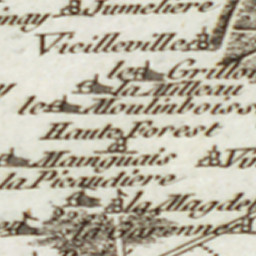 Jumeliere
Vieilleville
le Grillon
la Milleau
le Moulinboiss
Haute Forest
Mainguais
la Picaudiere
la Magde
la Garenne